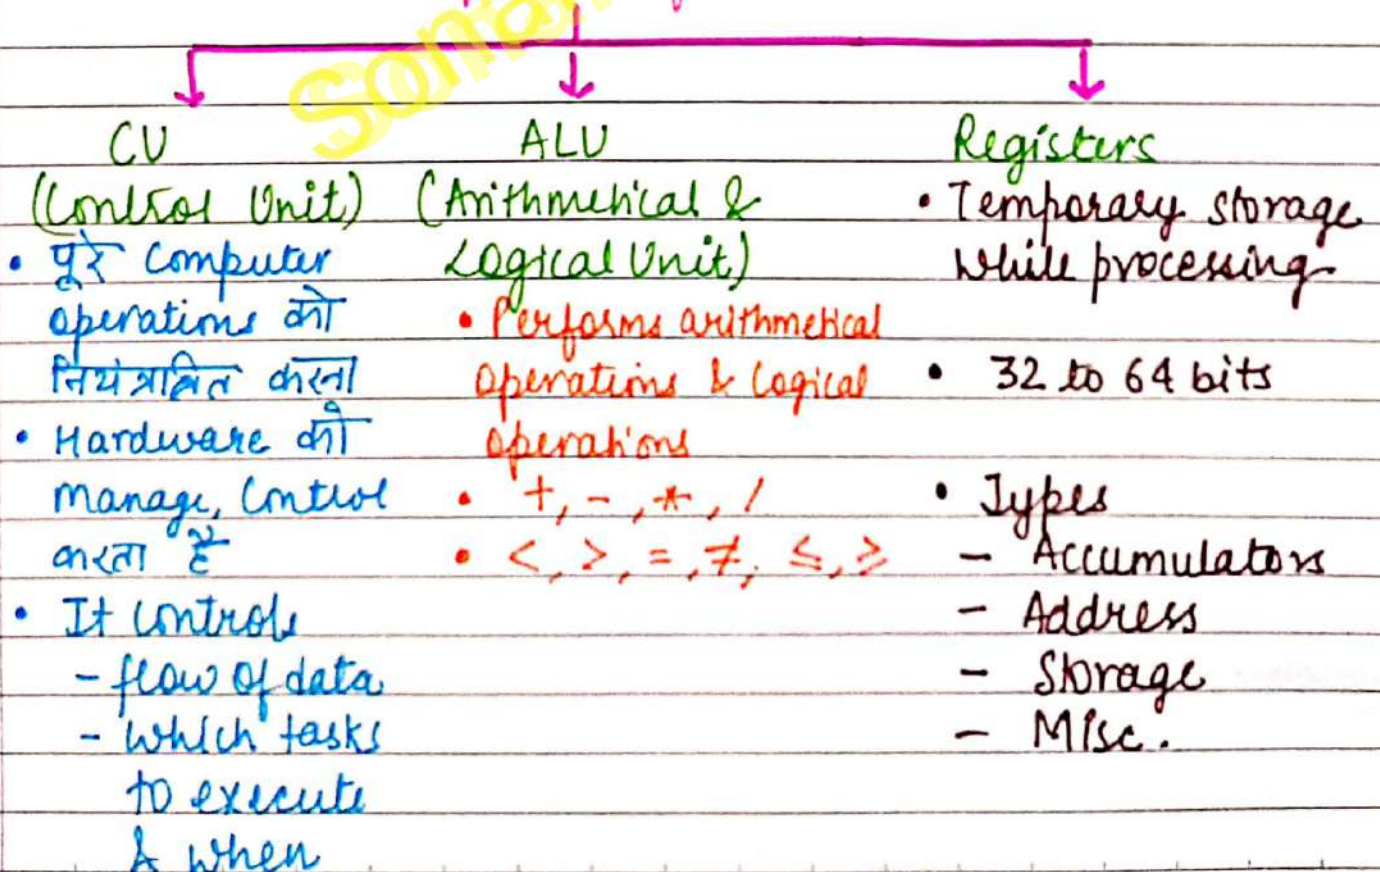 CU
(Control Unit)
• पूरे Computer
operations को
नियंत्रित करना
• Hardware को
manage, Control
करता है
• It controls
- flow of data
- which tasks
to execute
& when
ALU
(Arithmetical &
Logical Unit)
• Performs arithmetical
operations & logical
operations
• +, -, *, /
• <, >, =, ≠, ≤, ≥
Registers
• Temporary storage
while processing
• 32 to 64 bits
• Types
- Accumulators
- Address
- Storage
- Misc.